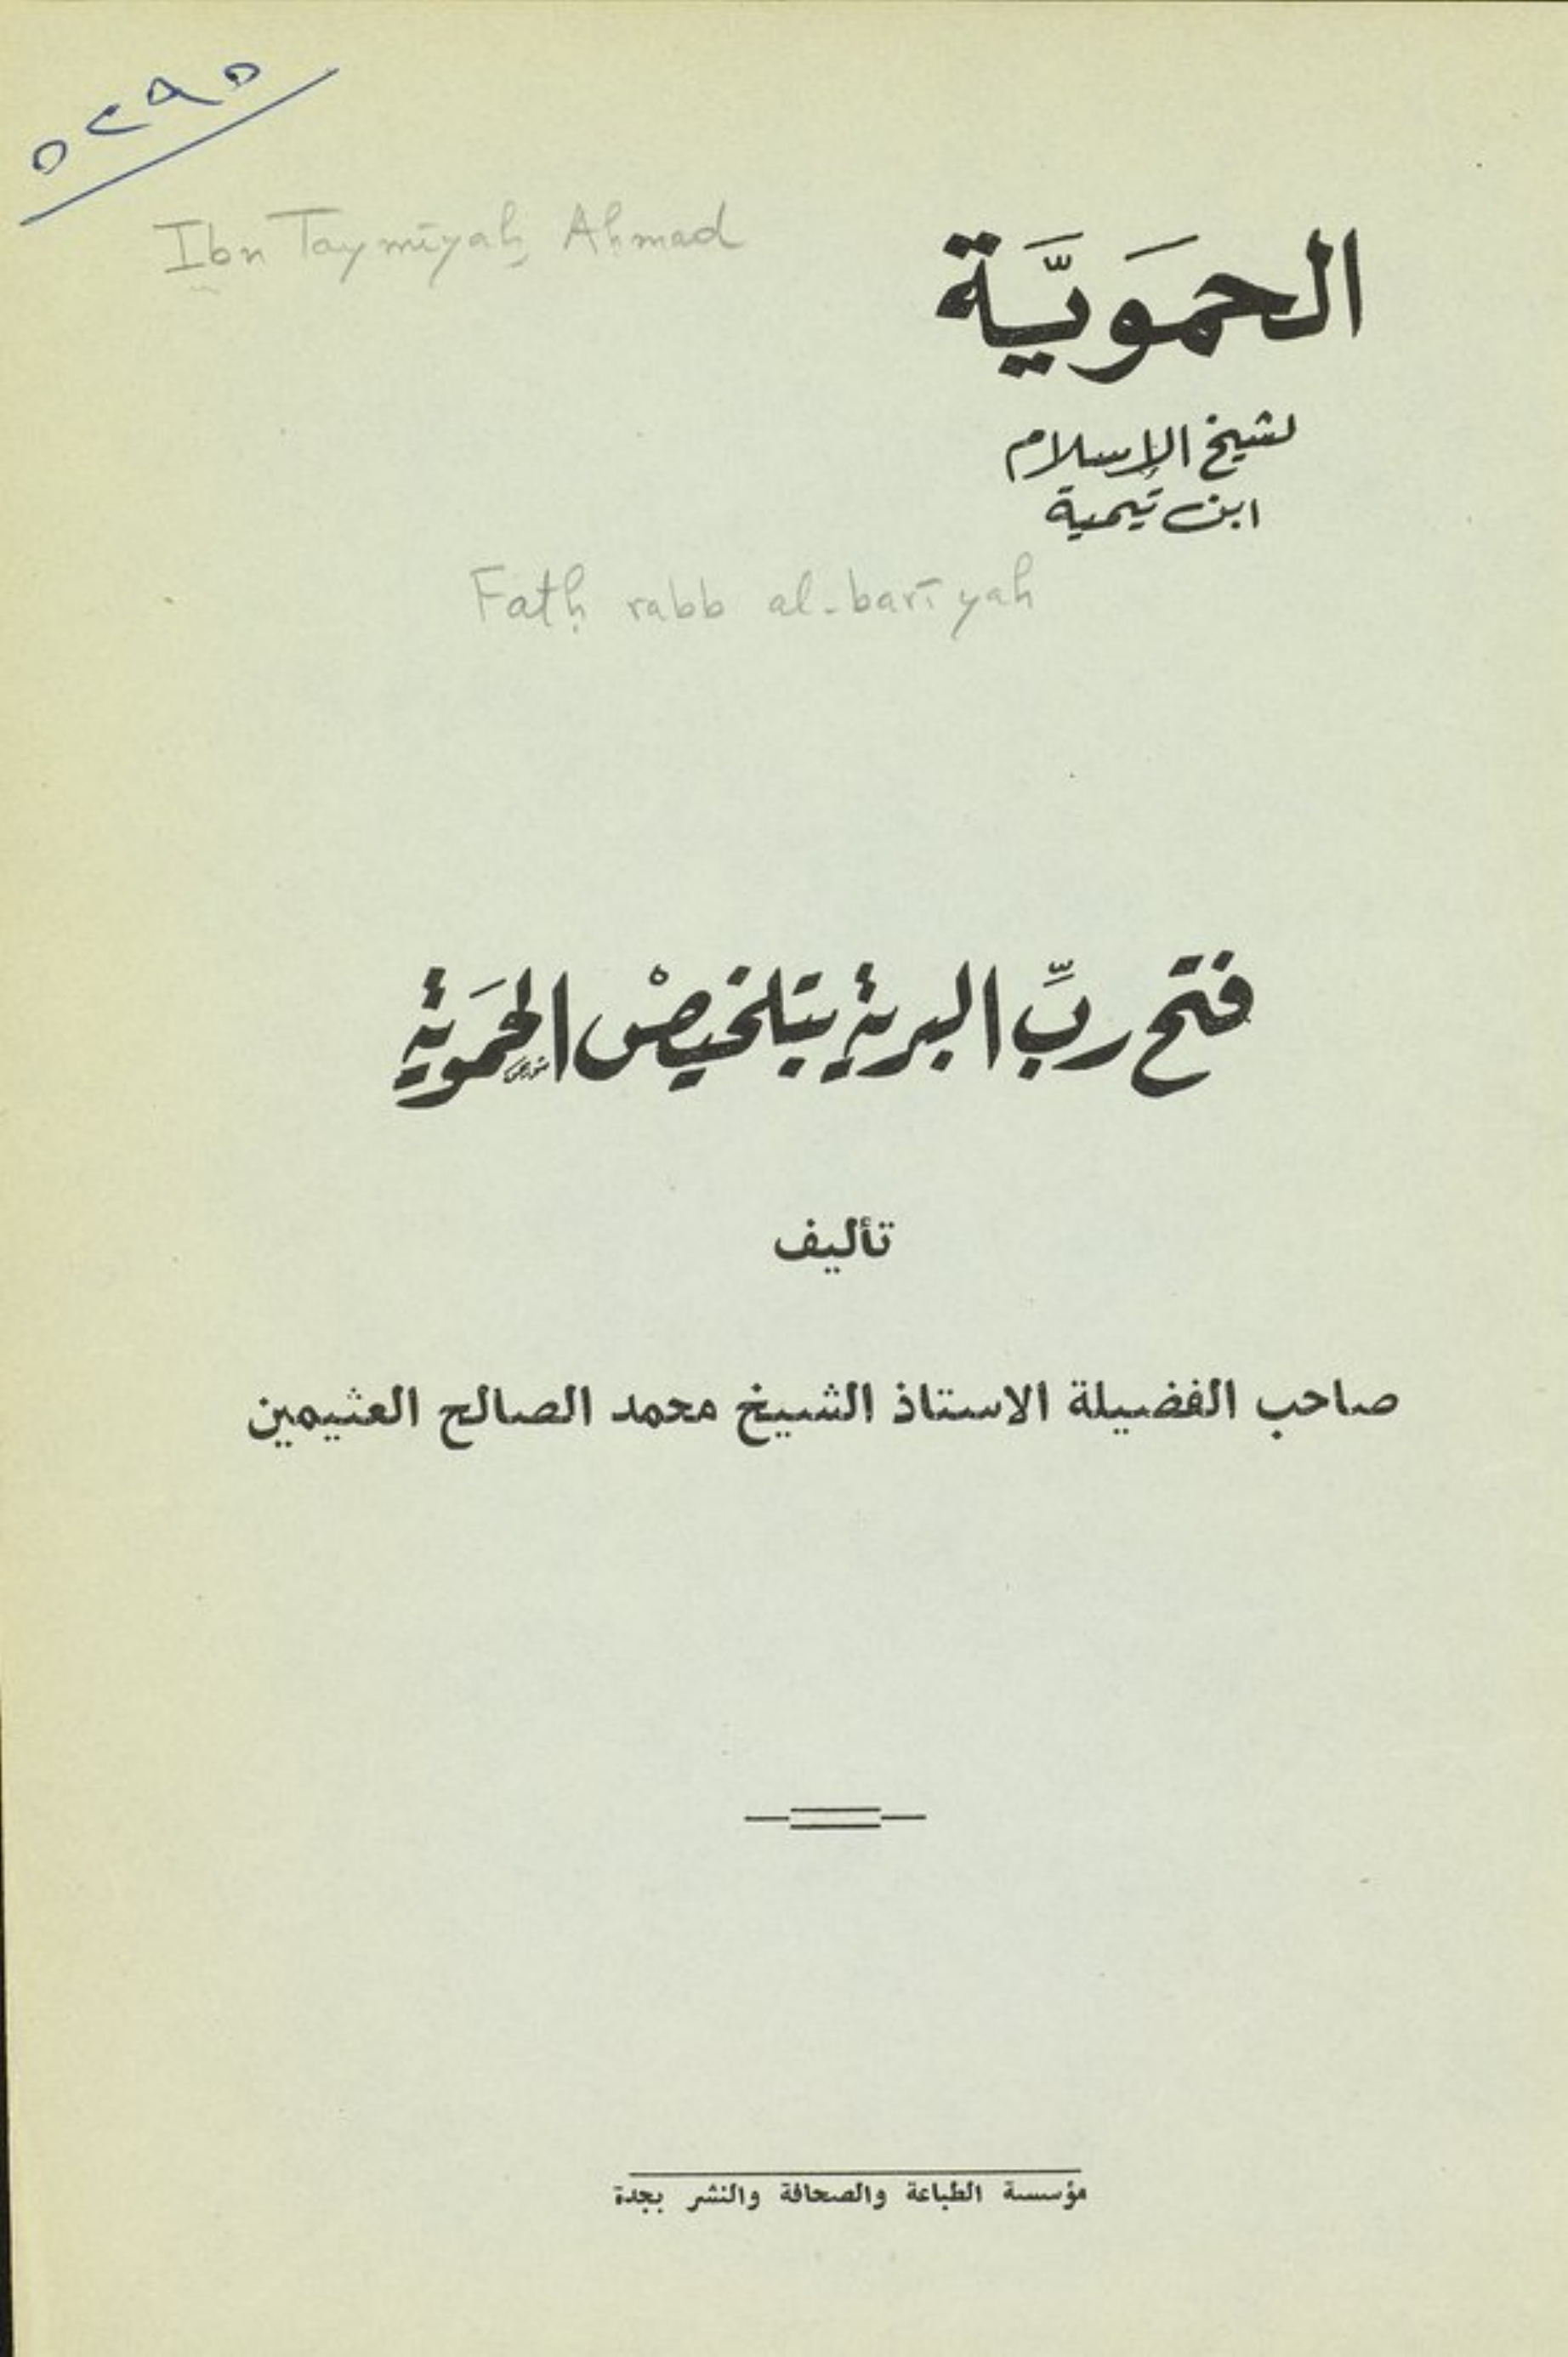 ٥٢٩٥
Ibn Taymīyah, Ahmad
الحمَويَّة
لشيخ الإسلام
ابن تيمية
Fatḥ rabb al-barīyah
فتح ربِّ البرية بتلخيصْ الحمَوية
تأليف
صاحب الفضيلة الاستاذ الشيخ محمد الصالح العثيمين
مؤسسة الطباعة والصحافة والنشر بجدة